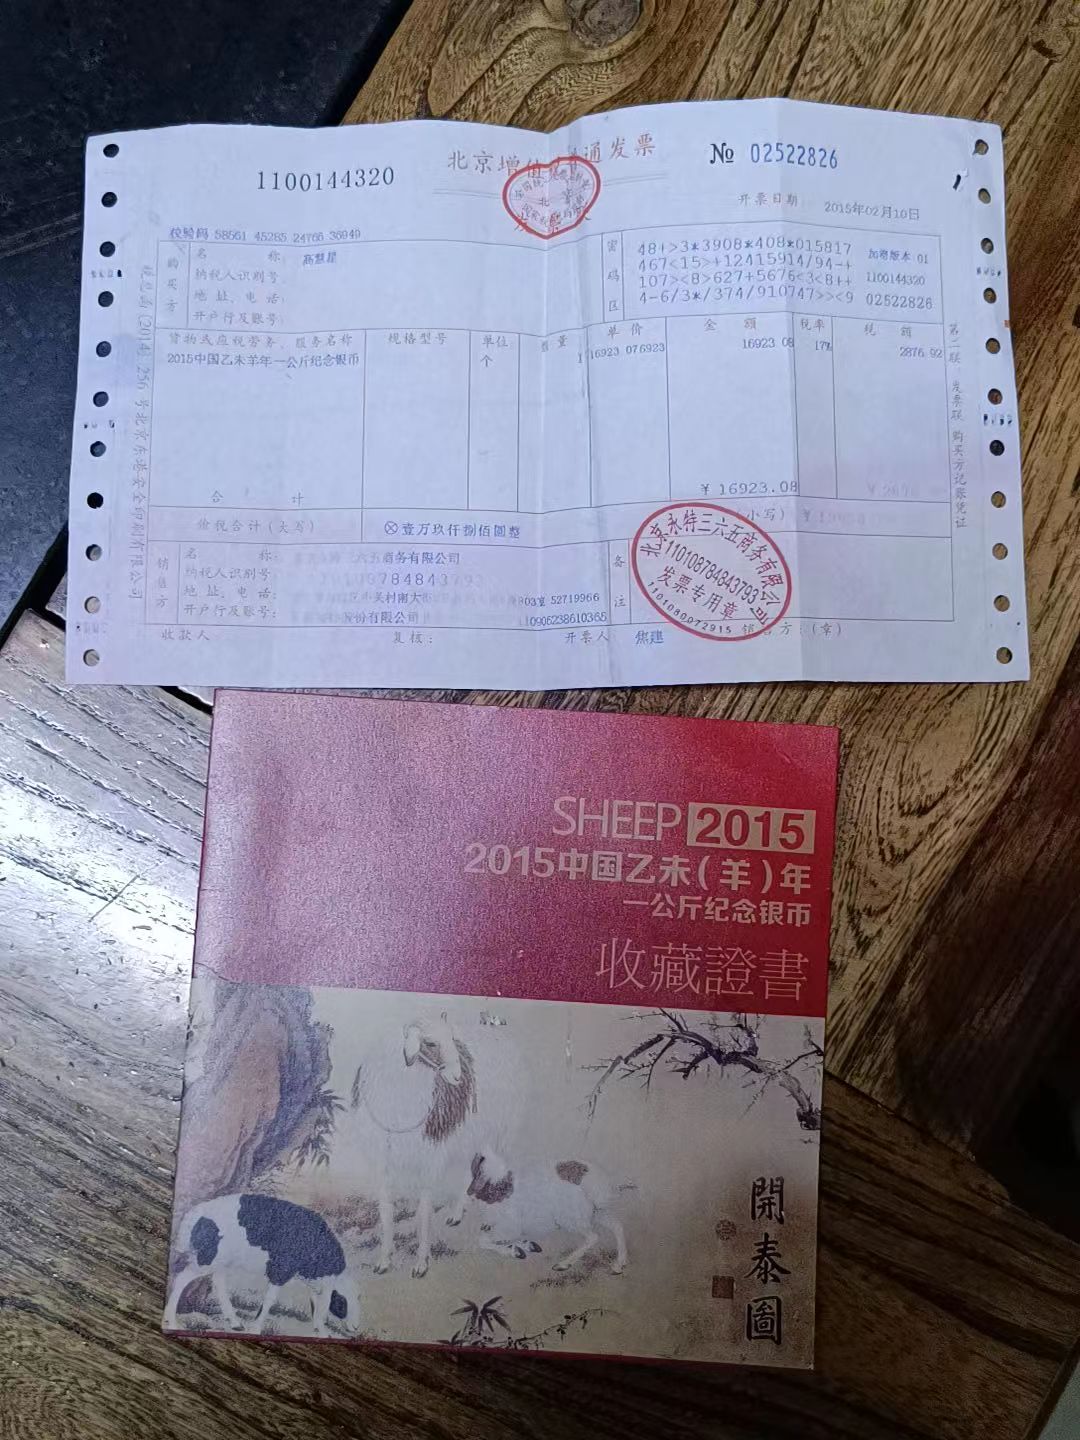 北京增值 通发票
1100144320
№ 02522826
开票日期
2015年02月10日
校验码 58561 45285 24766 36949
购买方
名 称：
高慧星
纳税人识别号：
地 址、电 话：
开户行及账号：
密码区
48+>3*3908*408*015817
467<15>+12415914/94-+
107><8>627+5676<3<8++
4-6/3*/374/910747>><9
加密版本 01
1100144320
02522826
货物或应税劳务、服务名称
规格型号
单位
数 量
单 价
金 额
税率
税 额
2015中国乙未羊年一公斤纪念银币
个
1
16923 076923
16923 08
17%
2876 92
合 计
¥ 16923.08
价税合计（大写）
ⓧ壹万玖仟捌佰圆整
（小写）
销售方
名 称：
六五商务有限公司
纳税人识别号：
108784843793
地 址、电 话：
关村南大街
803室 52719966
开户行及账号：
股份有限公司
110905238610365
备注
收款人
复核：
开票人
焦建
销售方：（章）
第二联 发票联 购买方记账凭证
北京永特三六五商务有限公司
110108784843793
发票专用章
1101080072915
SHEEP 2015
2015中国乙未（羊）年
一公斤纪念银币
收藏證書
開泰圖